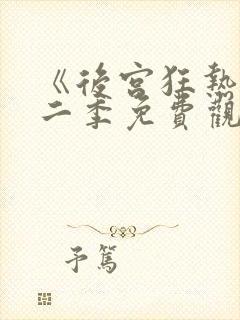 《後宮狂熱
二季免費觀
予篤